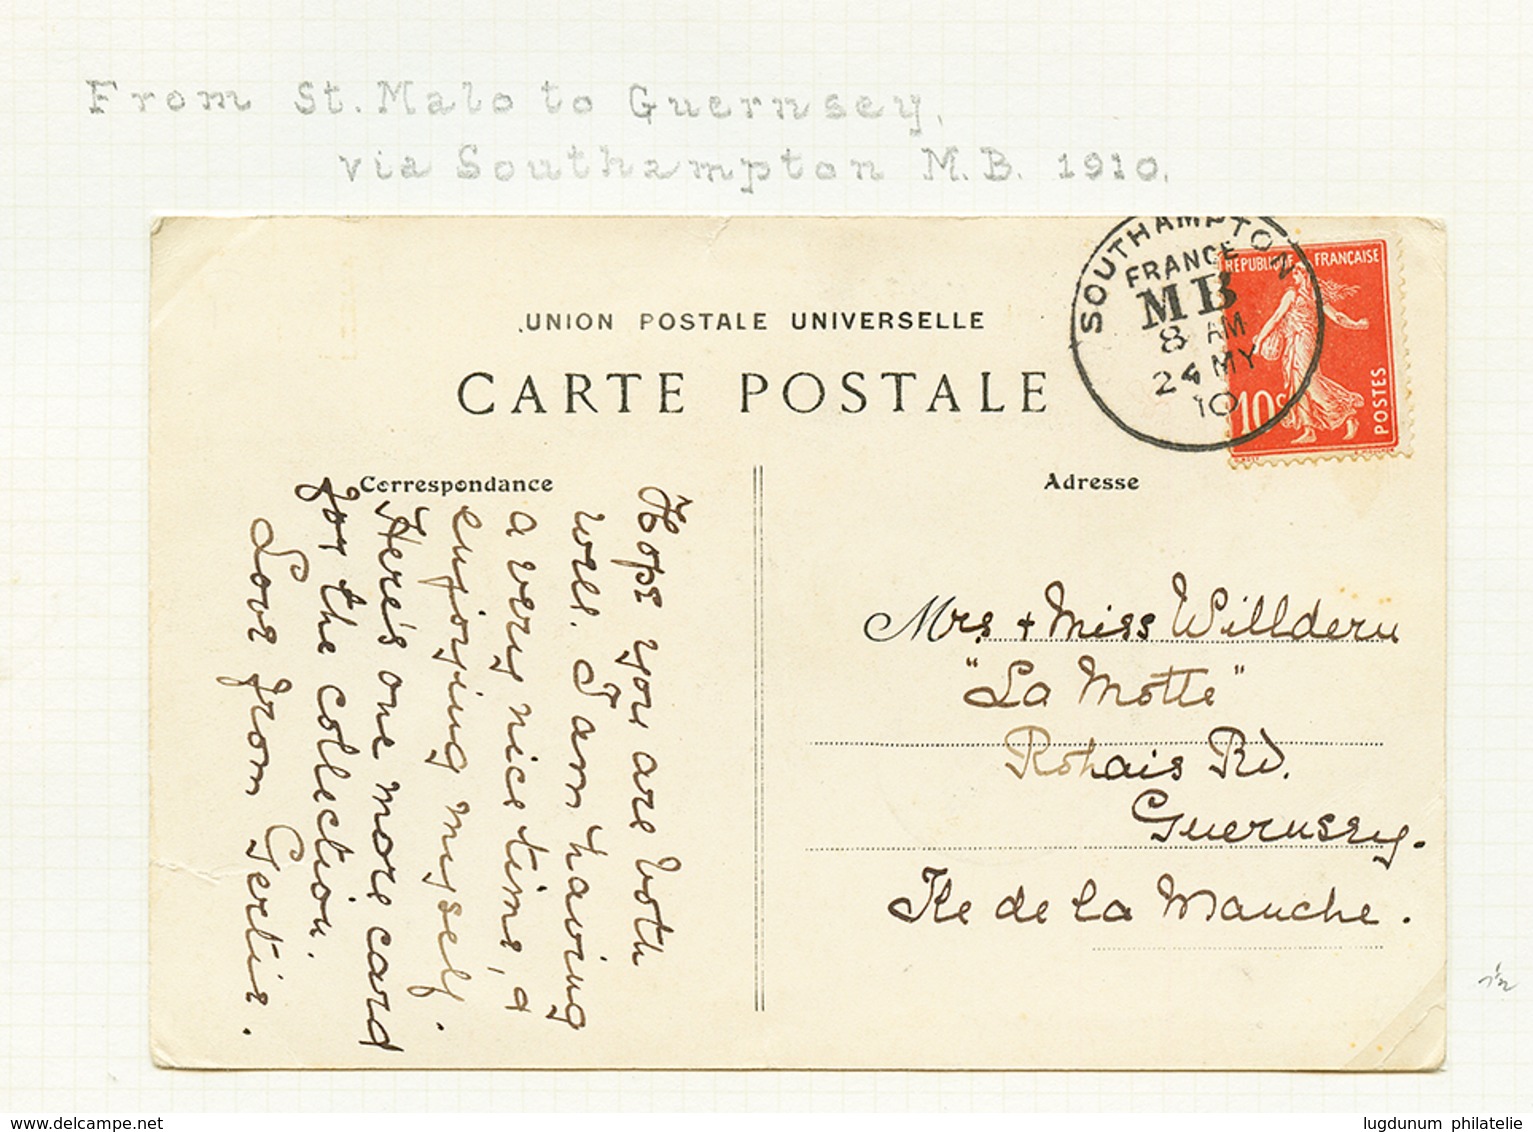 From St. Malo to Guernsey,
via Southampton M.B. 1910.
SOUTHAMPTON
FRANCE
MB
8 AM
24 MY
10
REPUBLIQUE FRANÇAISE
10c
POSTES
UNION POSTALE UNIVERSELLE
CARTE POSTALE
Correspondance
Adresse
Hope you are both
well. I am having
a very nice time, &
enjoying myself.
Here's one more card
for the collection.
Love from Gertie.
Mrs & Miss Willderu
"La Motte"
Rohais Rd.
Guernsey.
Ile de la Manche.
delcampe.net
lugdunum philatelie